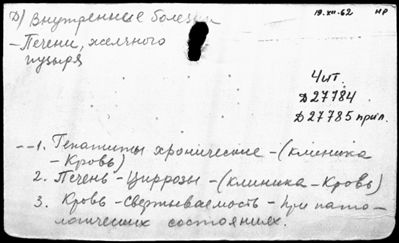 Д) Внутренние болезни
19.XII.62 нр
– Печени, желчного
пузыря
Чит.
Д 27784
Д 27785 прил.
1. Гепатиты хронические – (клиника
– Кровь)
2. Печень – Циррозы – (клиника – Кровь)
3. Кровь – Свертываемость – При пато-
логических состояниях.